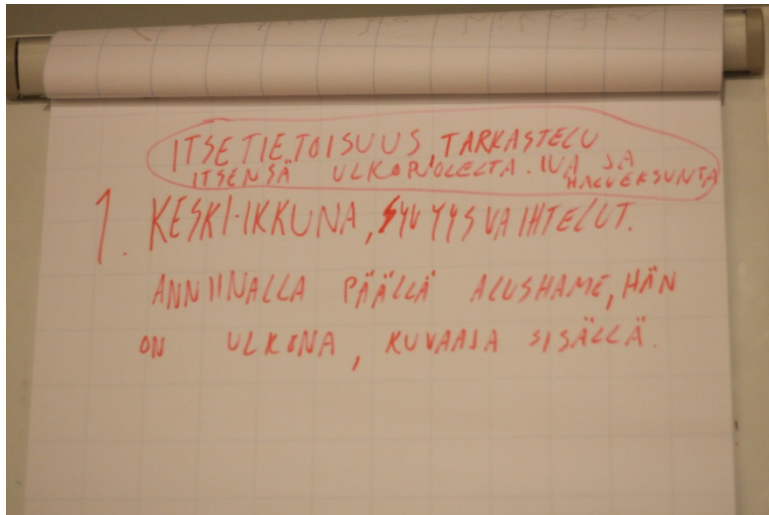 ITSETIETOISUUS, TARKASTELU
ITSENSÄ ULKOPUOLELTA. IVA JA
HALVEKSUNTA
1. KESKI-IKKUNA, SYVYYSVAIHTELUT.
ANNIINALLA PÄÄLLÄ ALUSHAME, HÄN
ON ULKONA, KUVAAJA SISÄLLÄ.